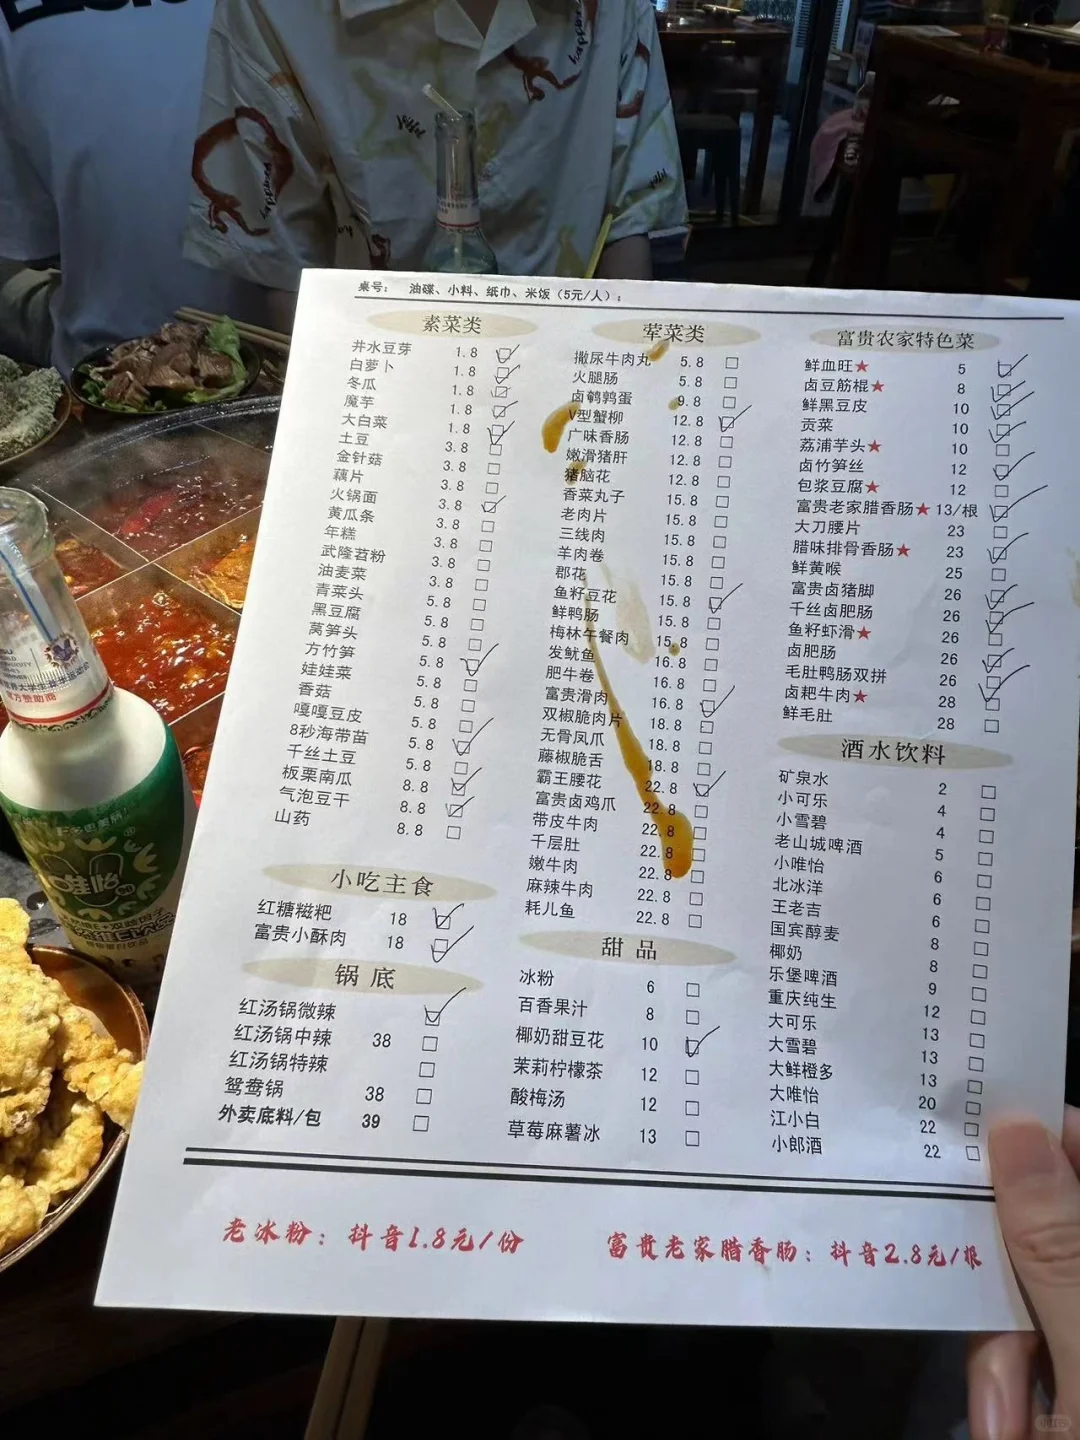 桌号: 油碟、小料、纸巾、米饭(5元/人):
素菜类
井水豆芽 1.8
白萝卜 1.8
冬瓜 1.8
魔芋 1.8
大白菜 1.8
土豆 3.8
金针菇 3.8
藕片 3.8
火锅面 3.8
黄瓜条 3.8
年糕 3.8
武隆苕粉 3.8
油麦菜 3.8
青菜头 5.8
黑豆腐 5.8
莴笋头 5.8
方竹笋 5.8
娃娃菜 5.8
香菇 5.8
嘎嘎豆皮 5.8
8秒海带苗 5.8
千丝土豆 5.8
板栗南瓜 8.8
气泡豆干 8.8
山药 8.8
小吃主食
红糖糍粑 18
富贵小酥肉 18
锅底
红汤锅微辣
红汤锅中辣 38
红汤锅特辣
鸳鸯锅 38
外卖底料/包 39
荤菜类
撒尿牛肉丸 5.8
火腿肠 5.8
卤鹌鹑蛋 9.8
V型蟹柳 12.8
广味香肠 12.8
嫩滑猪肝 12.8
猪脑花 12.8
香菜丸子 15.8
老肉片 15.8
三线肉 15.8
羊肉卷 15.8
郡花 15.8
鱼籽豆花 15.8
鲜鸭肠 15.8
梅林午餐肉 15.8
发鱿鱼 16.8
肥牛卷 16.8
富贵滑肉 16.8
双椒脆肉片 18.8
无骨凤爪 18.8
藤椒脆舌 18.8
霸王腰花 22.8
富贵卤鸡爪 22.8
带皮牛肉 22.8
千层肚 22.8
嫩牛肉 22.8
麻辣牛肉 22.8
耗儿鱼 22.8
甜品
冰粉 6
百香果汁 8
椰奶甜豆花 10
茉莉柠檬茶 12
酸梅汤 12
草莓麻薯冰 13
富贵农家特色菜
鲜血旺★ 5
卤豆筋棍★ 8
鲜黑豆皮 10
贡菜 10
荔浦芋头★ 10
卤竹笋丝 12
包浆豆腐★ 12
富贵老家腊香肠★ 13/根
大刀腰片 23
腊味排骨香肠★ 23
鲜黄喉 25
富贵卤猪脚 26
千丝卤肥肠 26
鱼籽虾滑★ 26
卤肥肠 26
毛肚鸭肠双拼 26
卤粑牛肉★ 28
鲜毛肚 28
酒水饮料
矿泉水 2
小可乐 4
小雪碧 4
老山城啤酒 5
小唯怡 6
北冰洋 6
王老吉 6
国宾醇麦 8
椰奶 8
乐堡啤酒 9
重庆纯生 12
大可乐 13
大雪碧 13
大鲜橙多 13
大唯怡 20
江小白 22
小郎酒 22
老冰粉:抖音1.8元/份
富贵老家腊香肠:抖音2.8元/根
唯怡